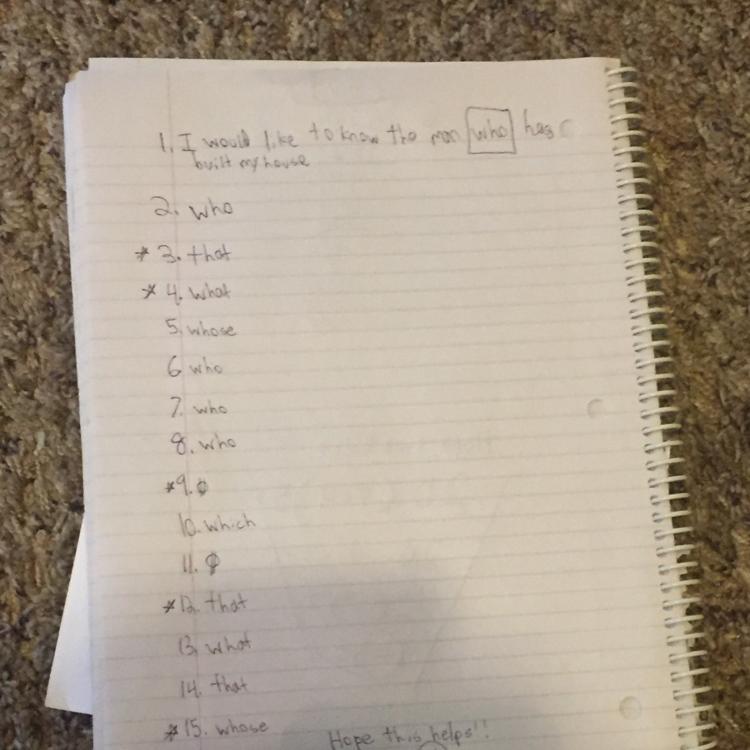 1. I would like to know the man who has
built my house
2. who
* 3. that
* 4. what
5. whose
6 who
7. who
8. who
*9. ø
10. which
11. ø
*12. that
13. what
14. that
*15. whose
Hope this helps!!